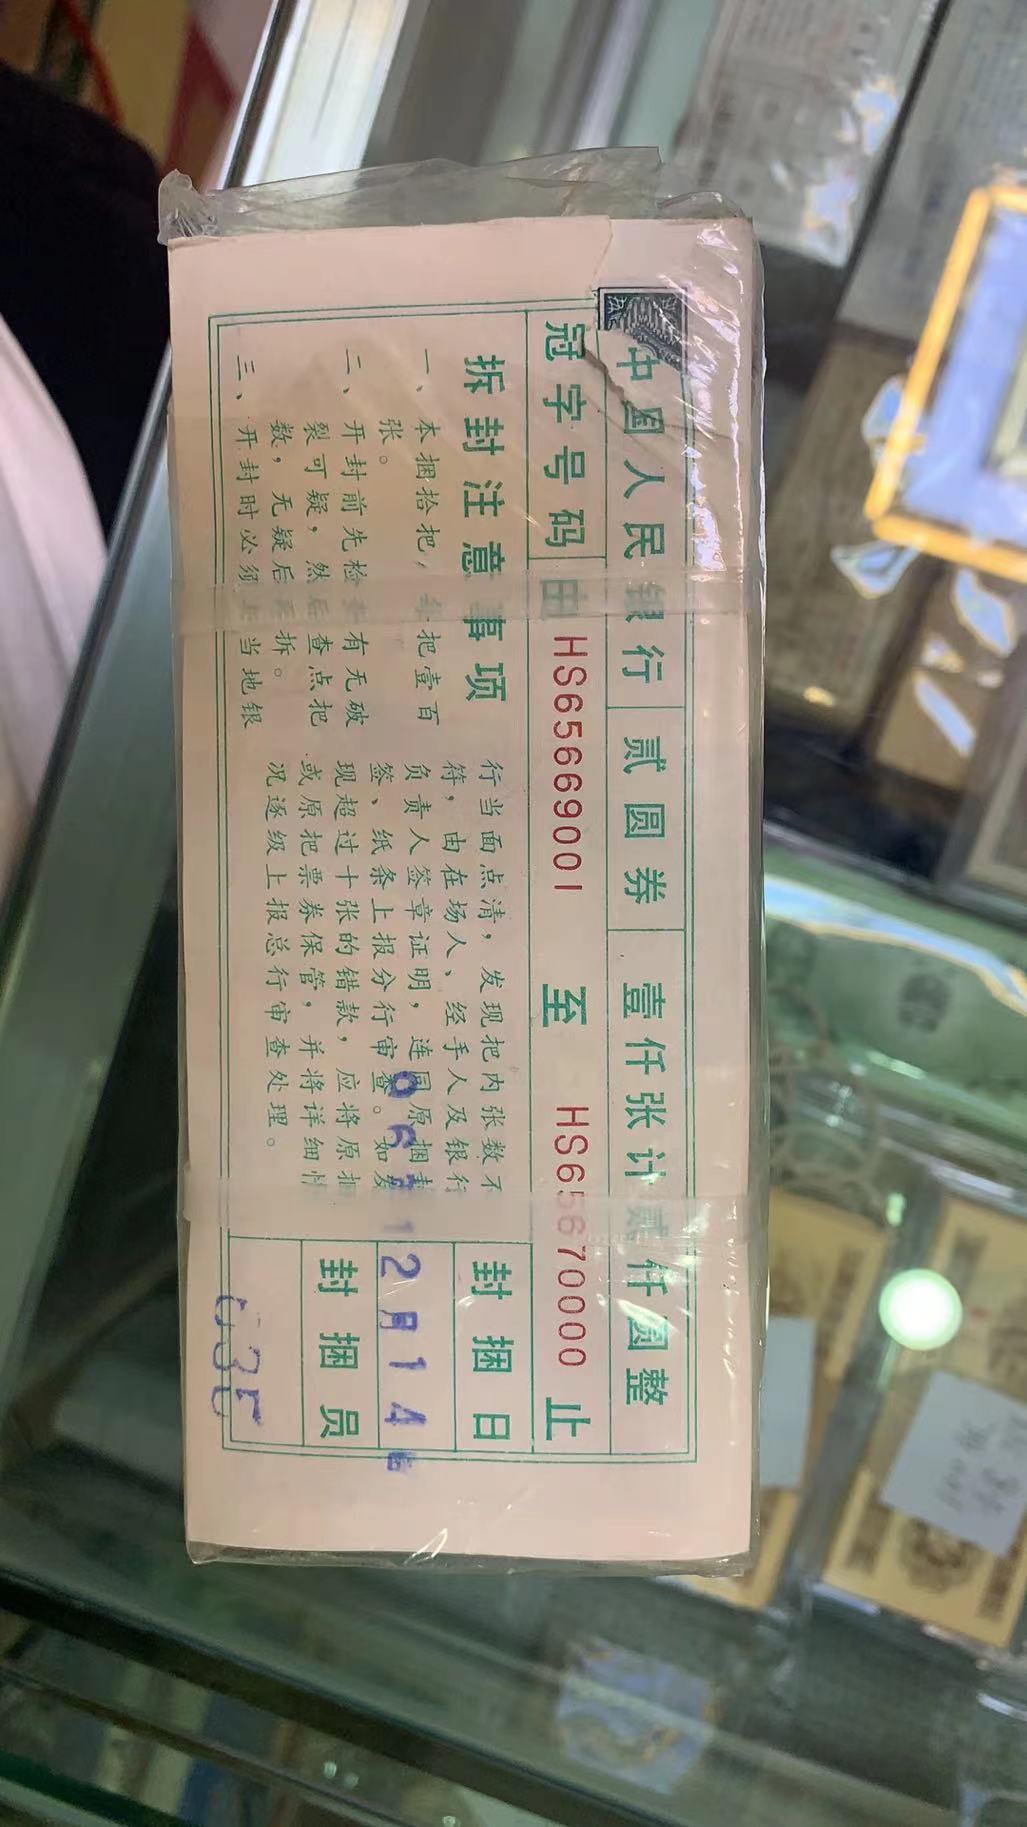 中国人民银行 贰圆券 壹仟张计贰仟圆整
冠字号码 由 HS65669001 至 HS65670000 止
拆封注意事项
一、本捆拾把，每把壹百
张。
二、开封前先检查有无破
裂可疑，然后查点把
数，无疑后再拆。
三、开封时必须上当地银
行当面点清，发现把内张数不
符，由在场人、经手人及银行
负责人签章证明，连同原捆封
签、纸条上报分行审查。如发
现超过十张的错款，应将原捆
或原把票券保管，并将详细情
况逐级上报总行审查处理。
封捆日
2月14
封捆员